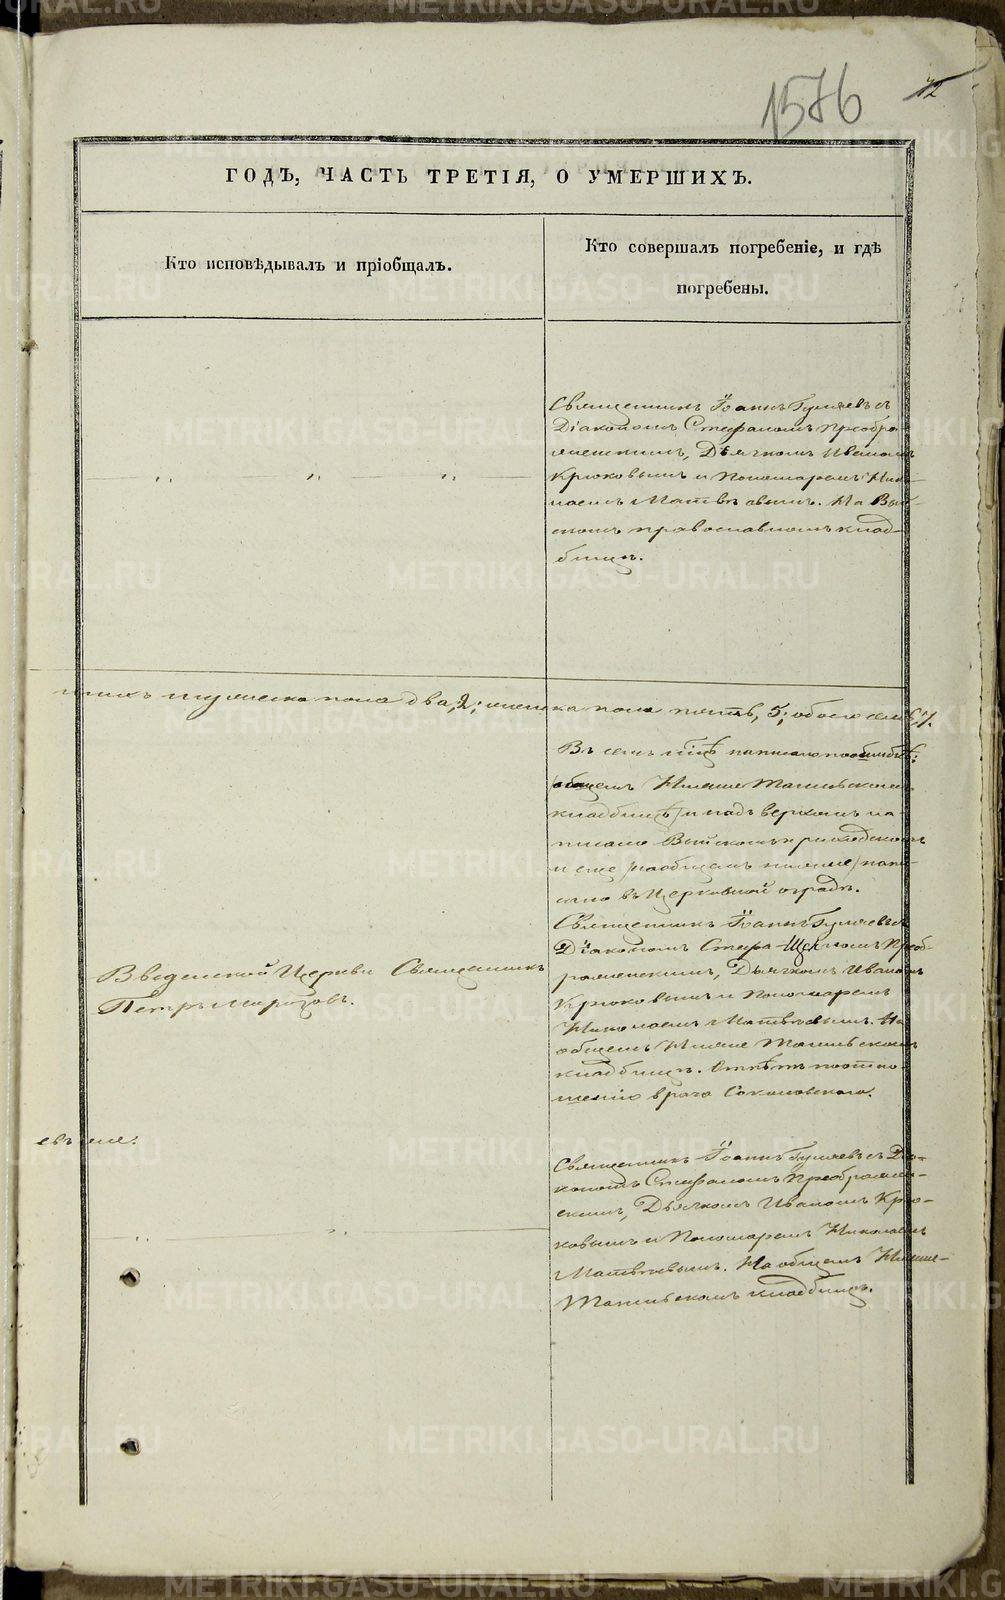 1576
72
ГОДЪ, ЧАСТЬ ТРЕТІЯ, О УМЕРШИХЪ.
Кто исповѣдывалъ и пріобщалъ.
Кто совершалъ погребеніе, и гдѣ
погребены.
Священникъ Іоаннъ Гуляевъ съ
Діакономъ Стефаномъ Преобра-
женскимъ, Дьячкомъ Иваномъ
Крюковымъ и Пономаремъ Нико-
лаемъ Матвѣевымъ. На Вый-
скомъ православномъ клад-
бищѣ.
мужеска пола два, 2; женска пола пять, 5; обоего семь, 7.
Въ семъ мѣсцѣ написано поошибкѣ:
общемъ Нижне Тагильскомъ
кладбищѣ / и надъ верхомъ на-
писано Выйскомъ приходскомъ
и еще / на общемъ нижне / напи-
сано въ Церковной оградѣ.
Священникъ Іоаннъ Гуляевъ съ
Діакономъ Стефаномъ Преоб-
раженскимъ, Дьячкомъ Иваномъ
Крюковымъ и Пономаремъ
Николаемъ Матвѣевымъ. На
общемъ Нижне Тагильскомъ
кладбищѣ. Отпѣтъ по отно-
шенію врача Соколовскаго.
Введенской Церкви Священникъ
Петръ Морозовъ.
Священникъ Іоаннъ Гуляевъ съ Діа-
кономъ Стефаномъ Преображен-
скимъ, Дьячкомъ Иваномъ Крю-
ковымъ и Пономаремъ Николаемъ
Матвѣевымъ. На общемъ Нижне-
Тагильскомъ кладбищѣ.
METRIKI.GASO-URAL.RU